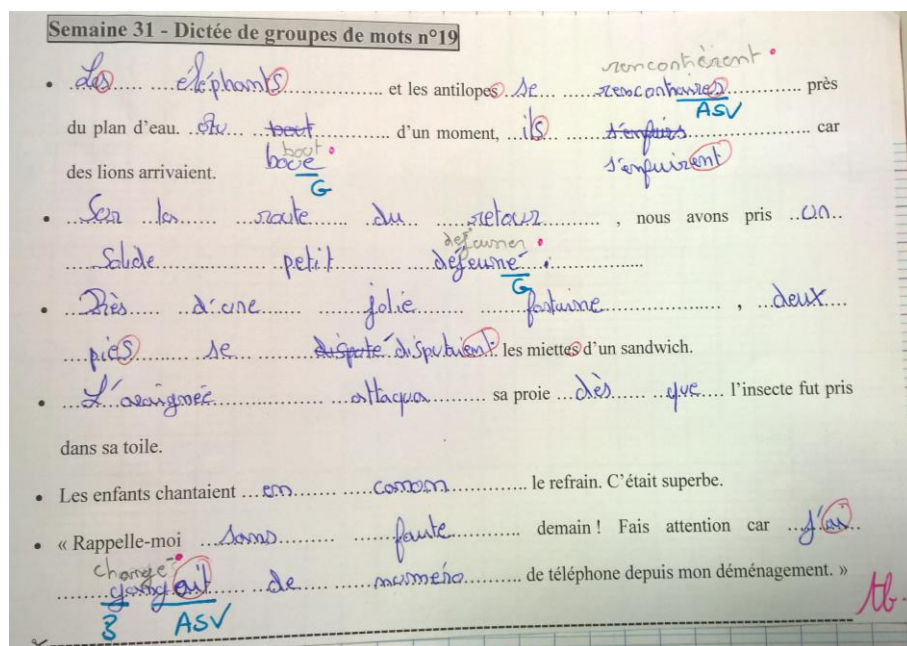 Semaine 31 - Dictée de groupes de mots n°19
rencontrèrent
• Les éléphants et les antilopes se près
ASV
du plan d'eau. Au bout d'un moment, ils s'enfuirs car
bout
des lions arrivaient. boue s'enfuirent
G
• Sur la route du retour , nous avons pris un
déjeuner
Solide petit déjeuné .
G
• Près d'une jolie fontaine , deux
pies se disputé disputaient les miettes d'un sandwich.
• L'araignée attaqua sa proie dès que l'insecte fut pris
dans sa toile.
• Les enfants chantaient en canon le refrain. C'était superbe.
• « Rappelle-moi sans faute demain ! Fais attention car j'ai
changé
de numéro de téléphone depuis mon déménagement. »
3 ASV
tb.